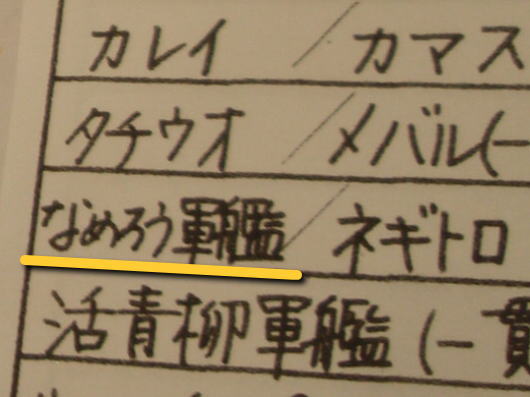 カレイ / カマス
タチウオ / メバル(一
なめろう軍艦 / ネギトロ
活青柳軍艦 (一貫